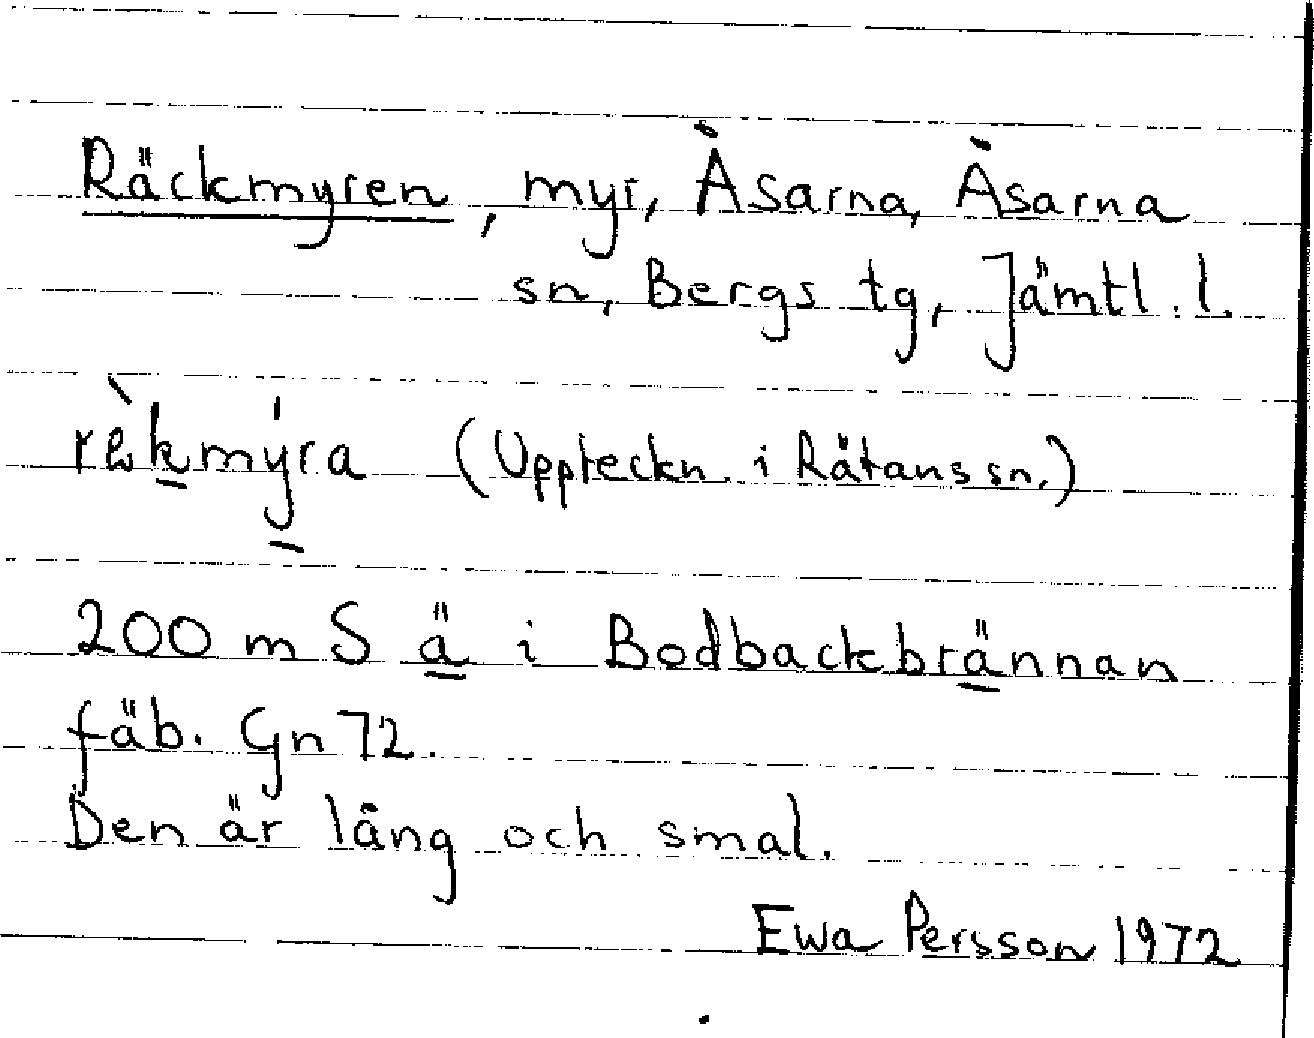 Räckmyren, myr, Åsarna, Åsarna
sn, Bergs tg, Jämtl. l.
mýra (Uppteckn. i Rätans sn.)
200 m S ä i Bodbackbrännan
fäb. Gn 72.
Den är lång och smal.
Ewa Persson 1972